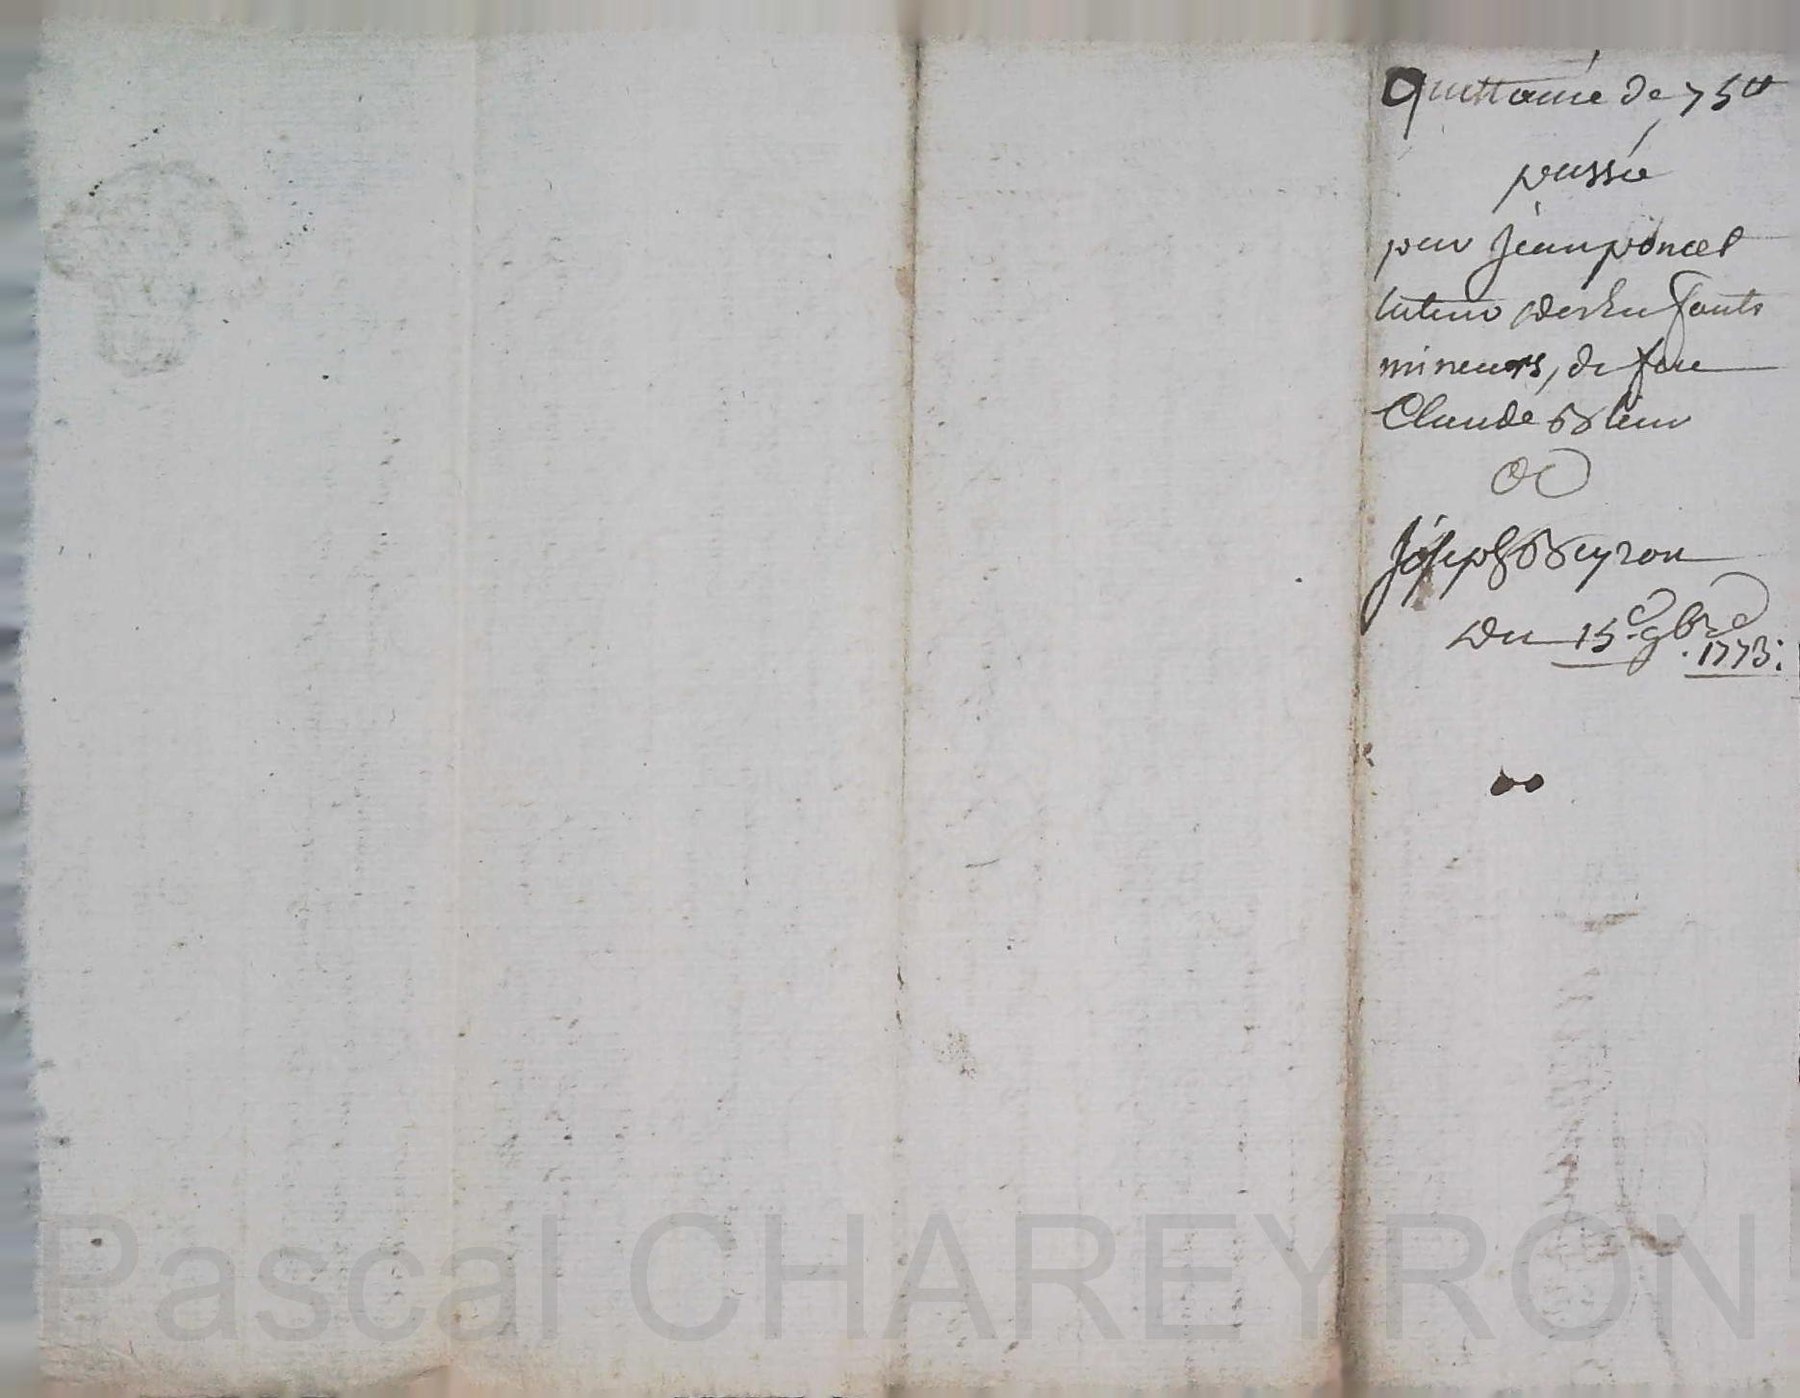 Quittance de 75tt
passée
par Jean poncet
tuteur des Enfants
mineurs, de feu
Claude
a
Joseph Veyron
du 15e 9bre
1773:
Pascal CHAREYRON